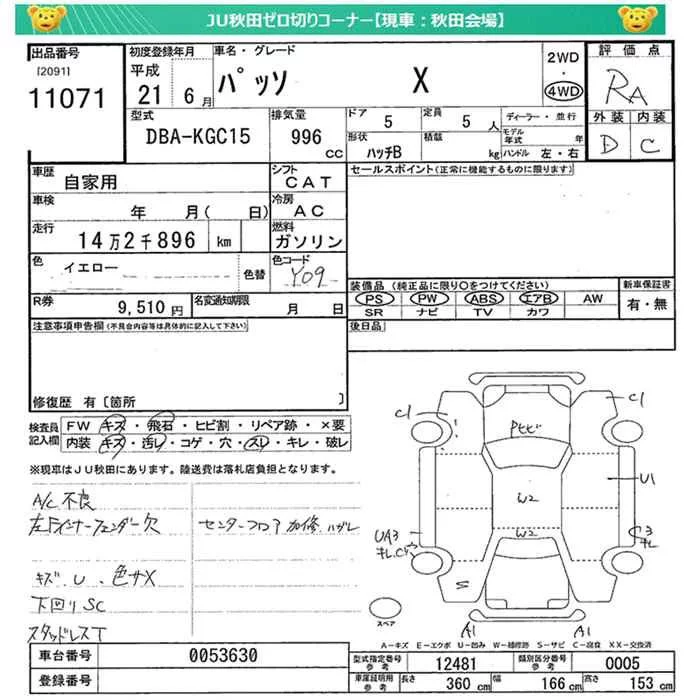 JU秋田ゼロ切りコーナー【現車：秋田会場】
出品番号
[2091]
11071
初度登録年月
平成
21年 6月
車名・グレード
パッソ X
2WD
・
4WD
評価点
RA
外装 内装
D C
型式
DBA-KGC15
排気量
996
CC
ドア
5
定員
5人
形状
ハッチB
積載
kg
ディーラー・並行
モデル年式 年
ハンドル 左・右
車歴
自家用
シフト
CAT
車検
年 月( 日)
冷房
AC
走行
14万2千896 km
燃料
ガソリン
色
イエロー
色替
色コード
Y09
R券
9,510円
名変通知期限
月 日
セールスポイント(正常に機能するものに限ります)
装備品 (純正品に限り○をつけてください)
PS PW ABS エアB AW
SR ナビ TV カワ
新車保証書
有・無
後日品
注意事項申告欄(不具合内容等は具体的に記入して下さい)
修復歴 有〔箇所 〕
検査員記入欄
FW キズ・飛石・ヒビ割・リペア跡・×要
内装 キズ・汚レ・コゲ・穴・スレ・キレ・破レ
※現車はJU秋田にあります。陸送費は落札店負担となります。
A/C 不良
左Fインナーフェンダー欠
センターフロア 加修・ハガレ
キズ・U・色サX
下回りSC
スタッドレスT
C1
C1
W2
U1
UA3
W2
C3
キレ
S
スペア
A1
A1
A-キズ E-エクボ U-凹み W-補修跡 S-サビ C-腐食 XX-交換済
車台番号
0053630
登録番号
型式指定番号
参考
12481
類別区分番号
参考
0005
車庫証明用
参考
長さ
360 cm
幅
166 cm
高さ
153 cm